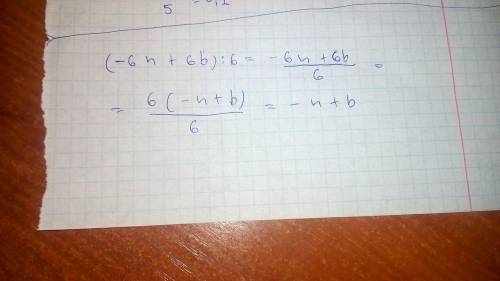 5 - 0,1
(-6n + 6b) : 6 = -6n + 6b / 6 =
= 6 (-n + b) / 6 = -n + b